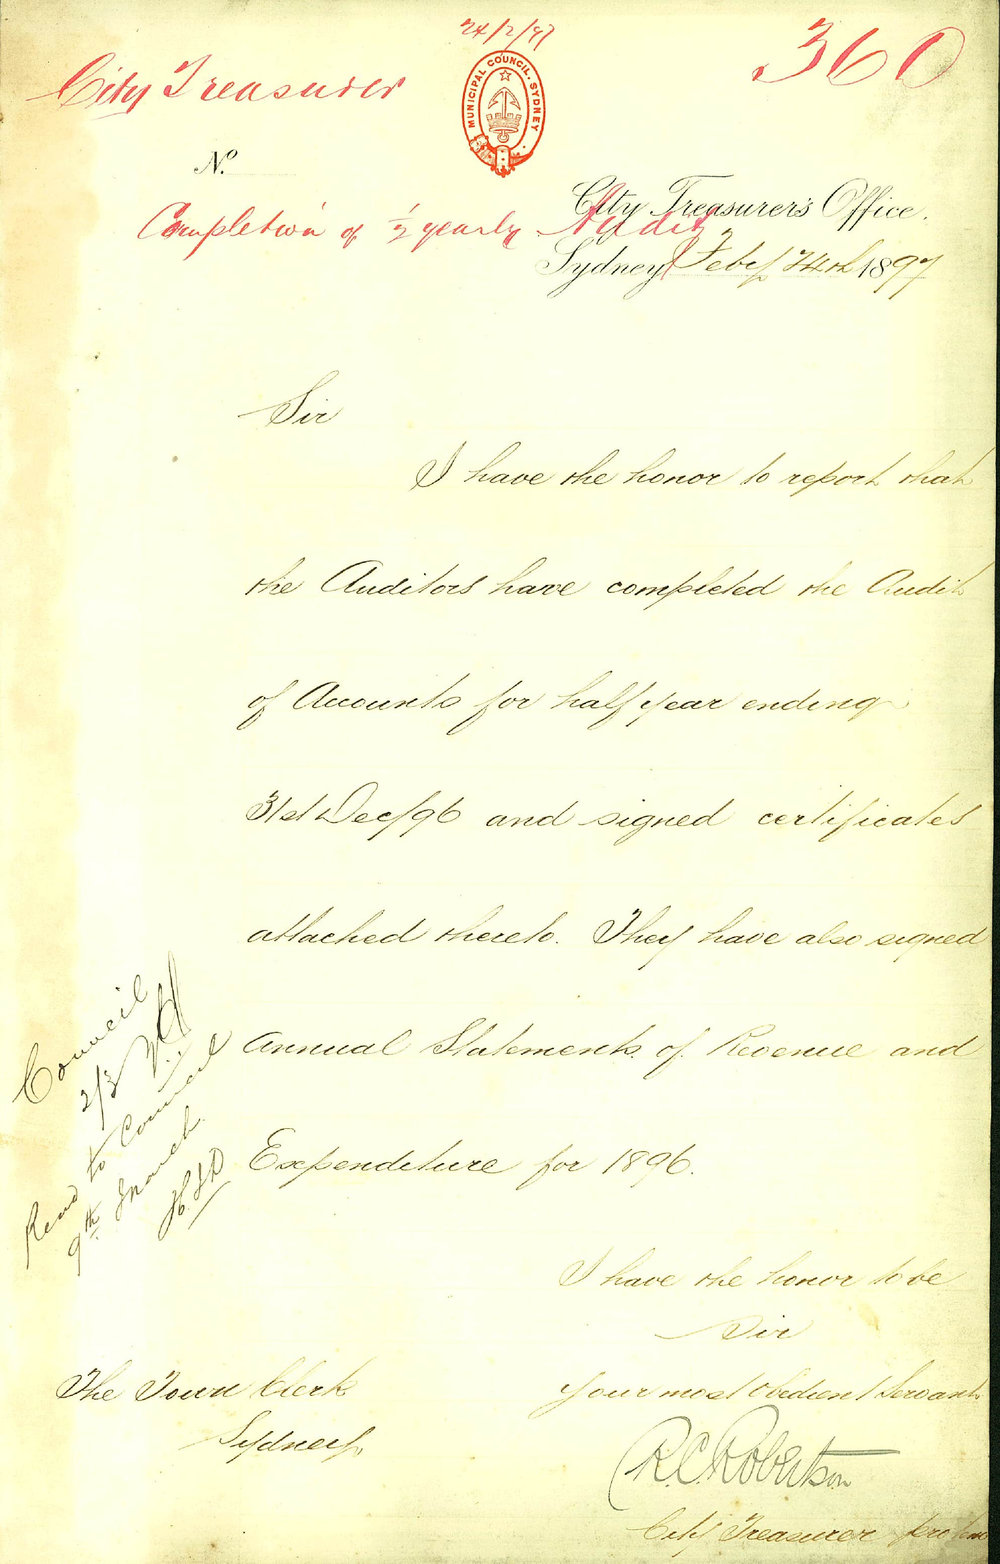 24/2/97
360
City Treasurer
MUNICIPAL COUNCIL. SYDNEY
No.
City Treasurer's Office.
Completion of ½ yearly Audit
Sydney Feby 24th 1897
Sir
I have the honor to report that
the Auditors have completed the Audit
of Accounts for half year ending
31st Dec/96 and signed certificates
attached thereto. They have also signed
Annual Statements of Revenue and
Expenditure for 1896.
Council
2/3
Read to Council
9th March
I have the honor to be
Sir
Your most obedient Servant
The Town Clerk
Sydney
R.C. Robertson
City Treasurer pro tem